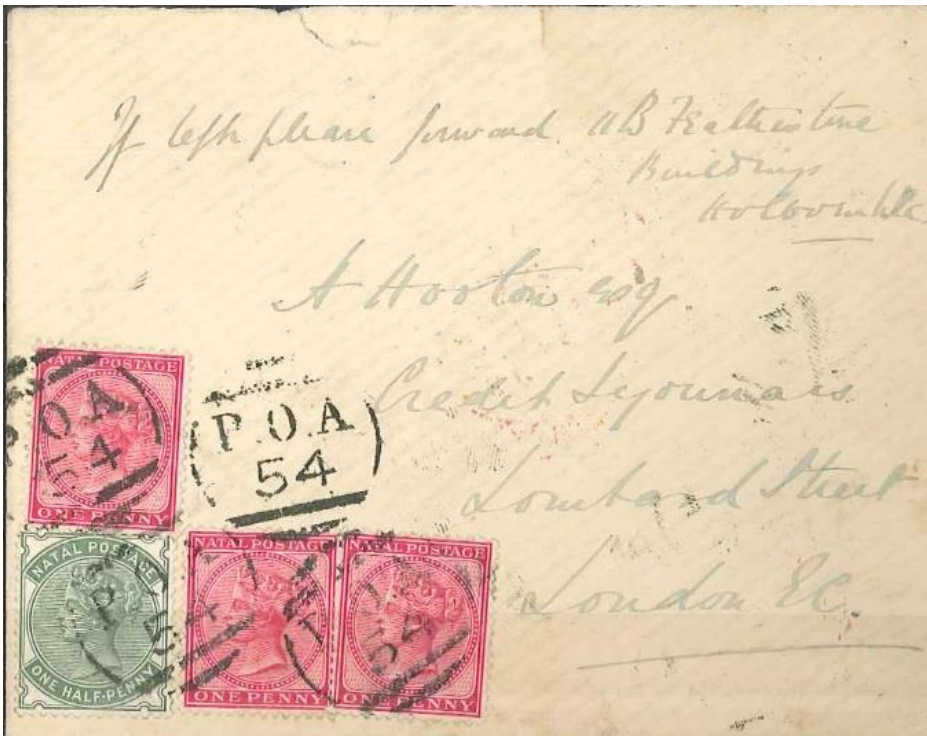 If left please forward 11B Featherstone
Buildings
Holborn
A Hooton esq
Credit Lyonnais
Lombard Street
London EC
NATAL POSTAGE
ONE PENNY
P.O.A
54
P.O.A
54
NATAL POSTAGE
ONE HALF-PENNY
NATAL POSTAGE
ONE PENNY
NATAL POSTAGE
ONE PENNY
54
54